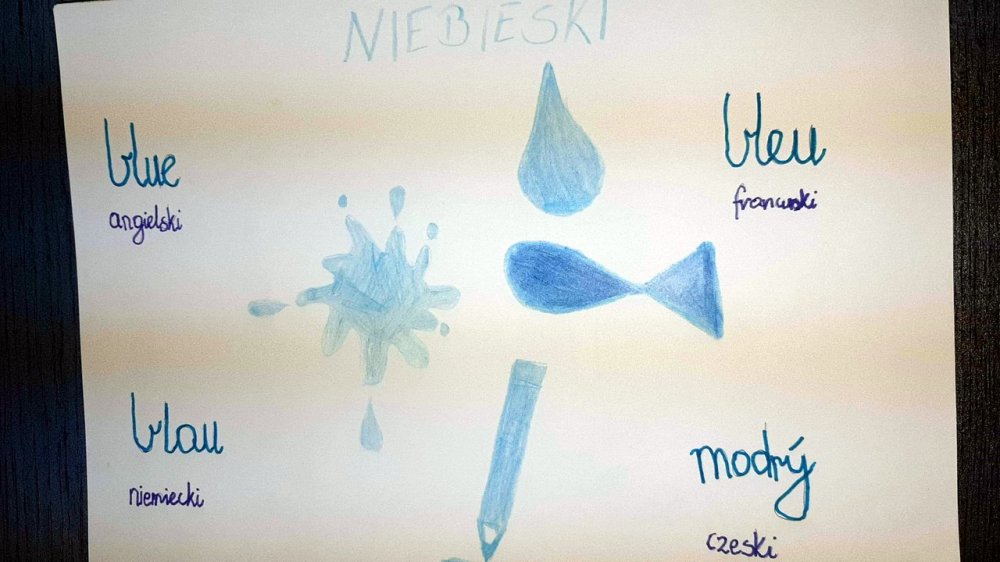 NIEBIESKI
blue
angielski
bleu
francuski
blau
niemiecki
modrý
czeski